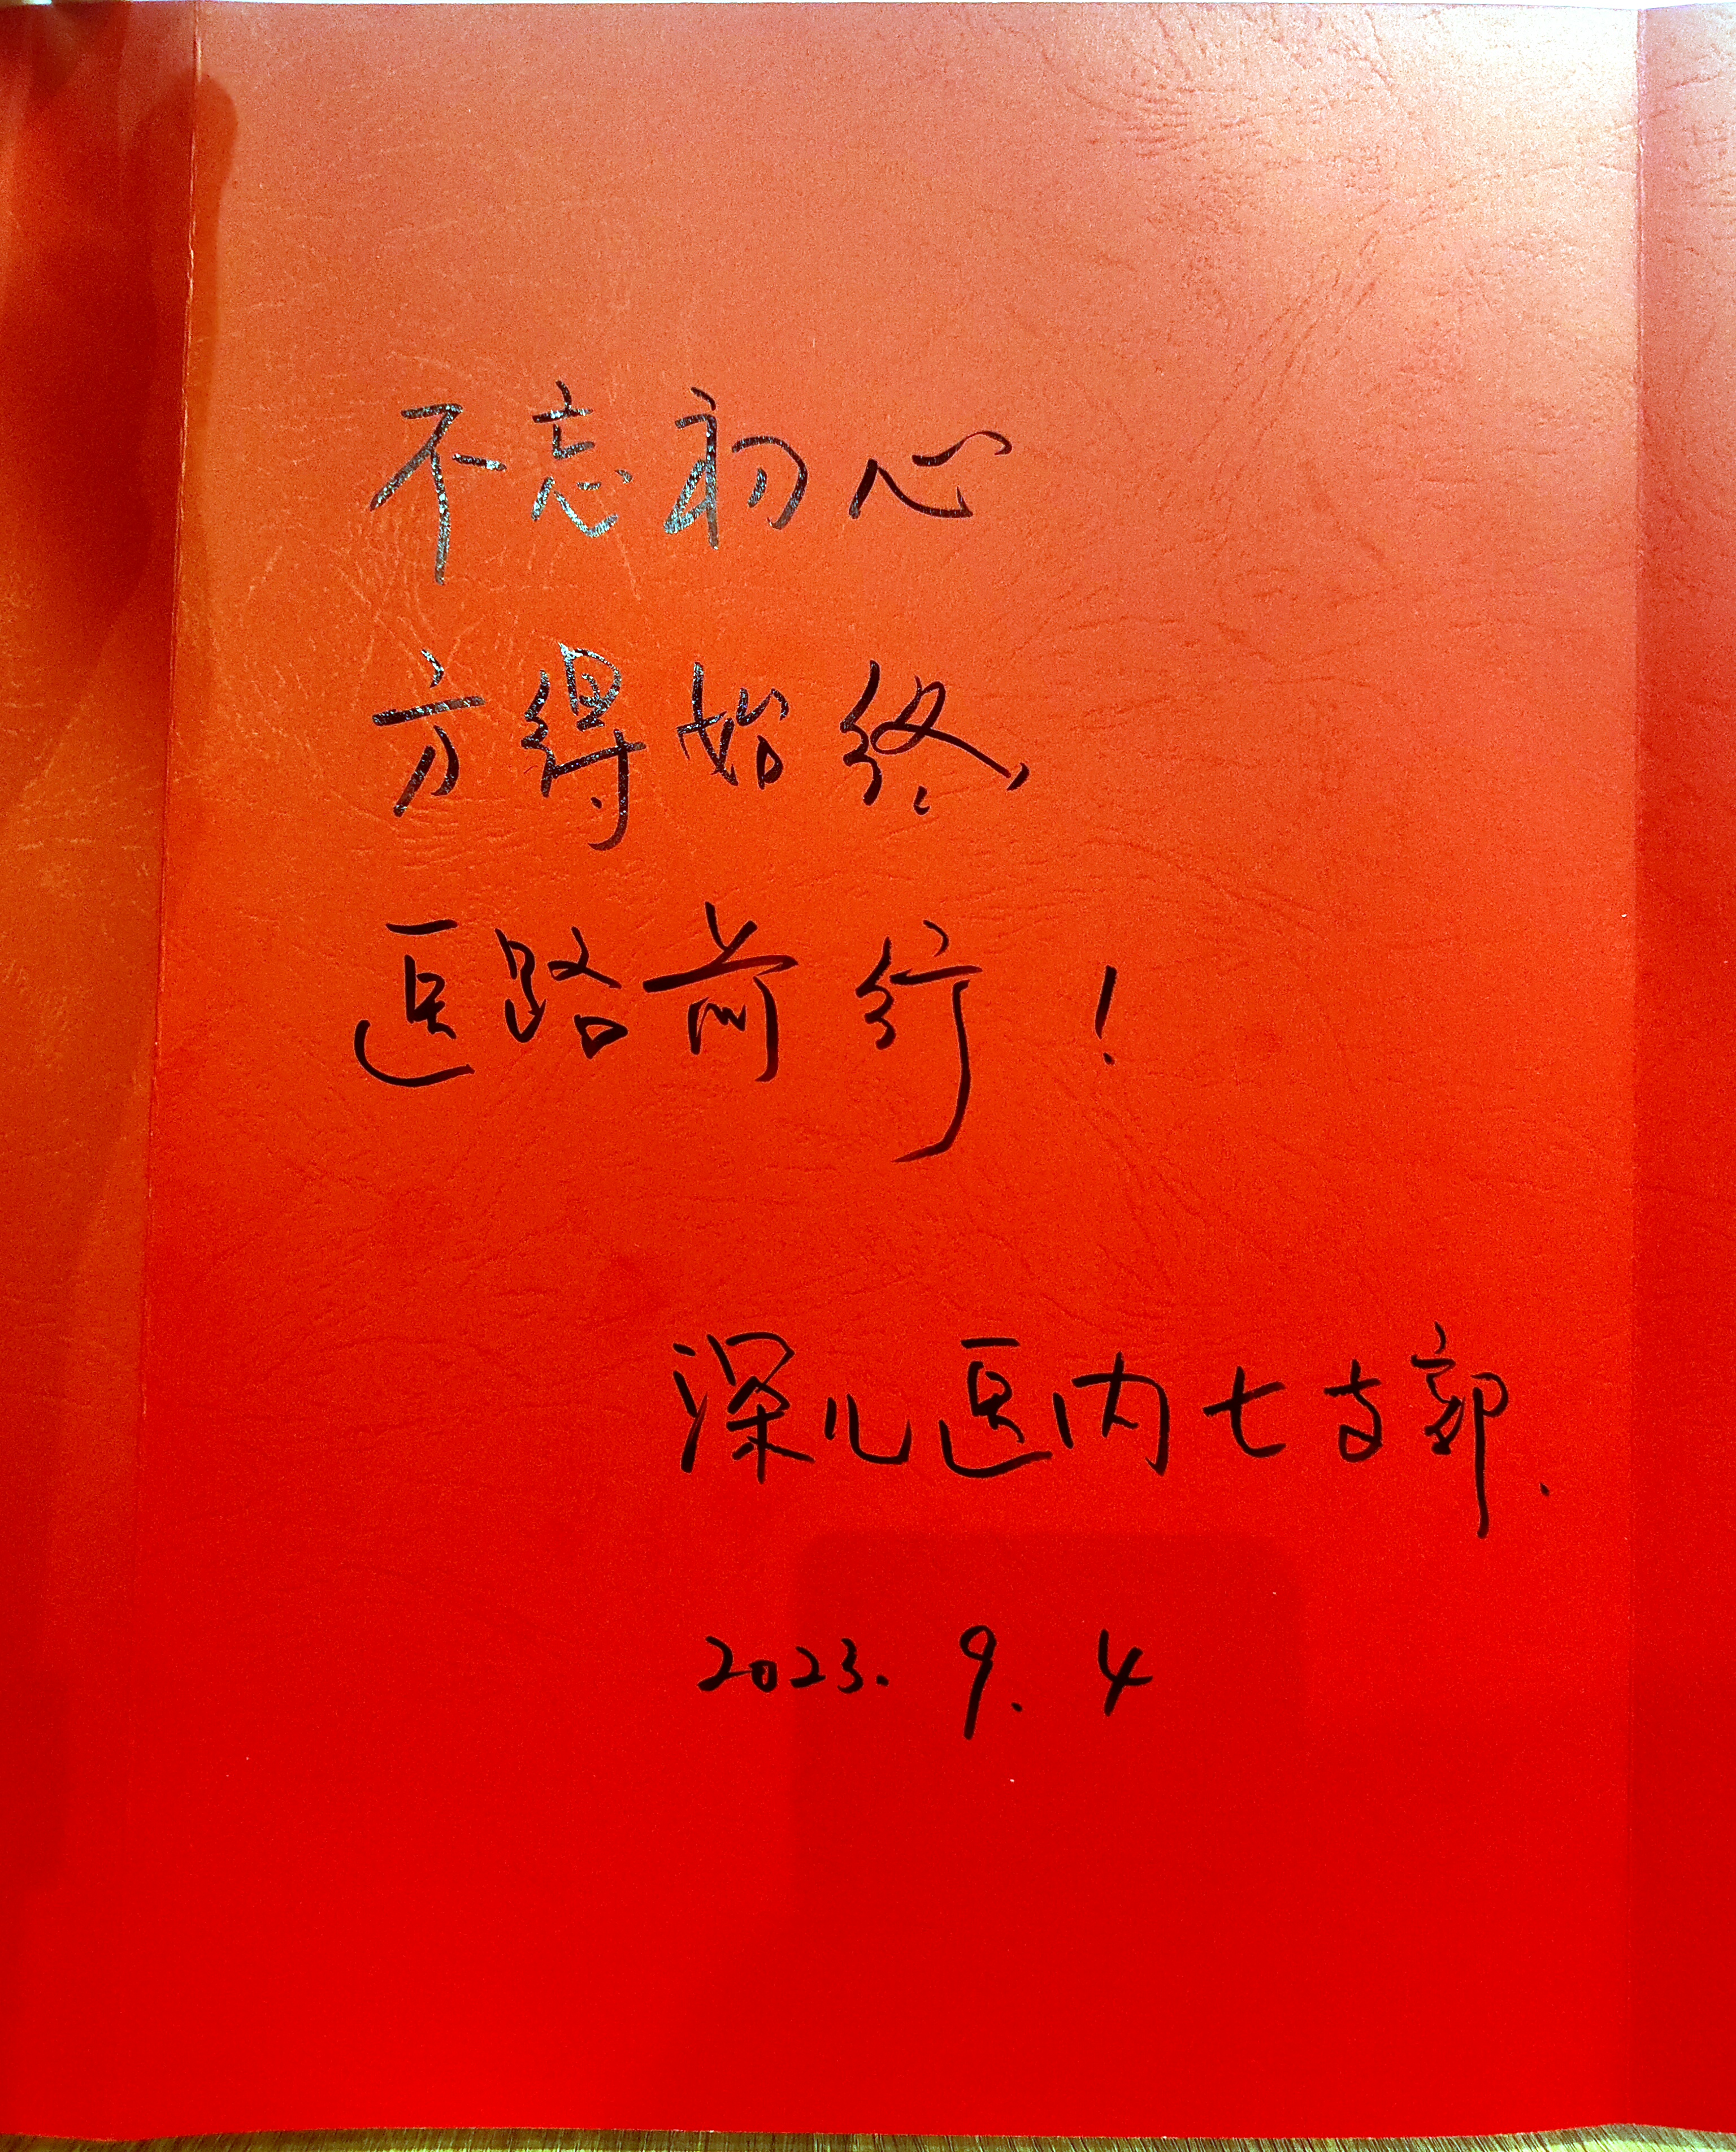 不忘初心
方得始终
医路前行!
深儿医内七支部.
2023.9.4